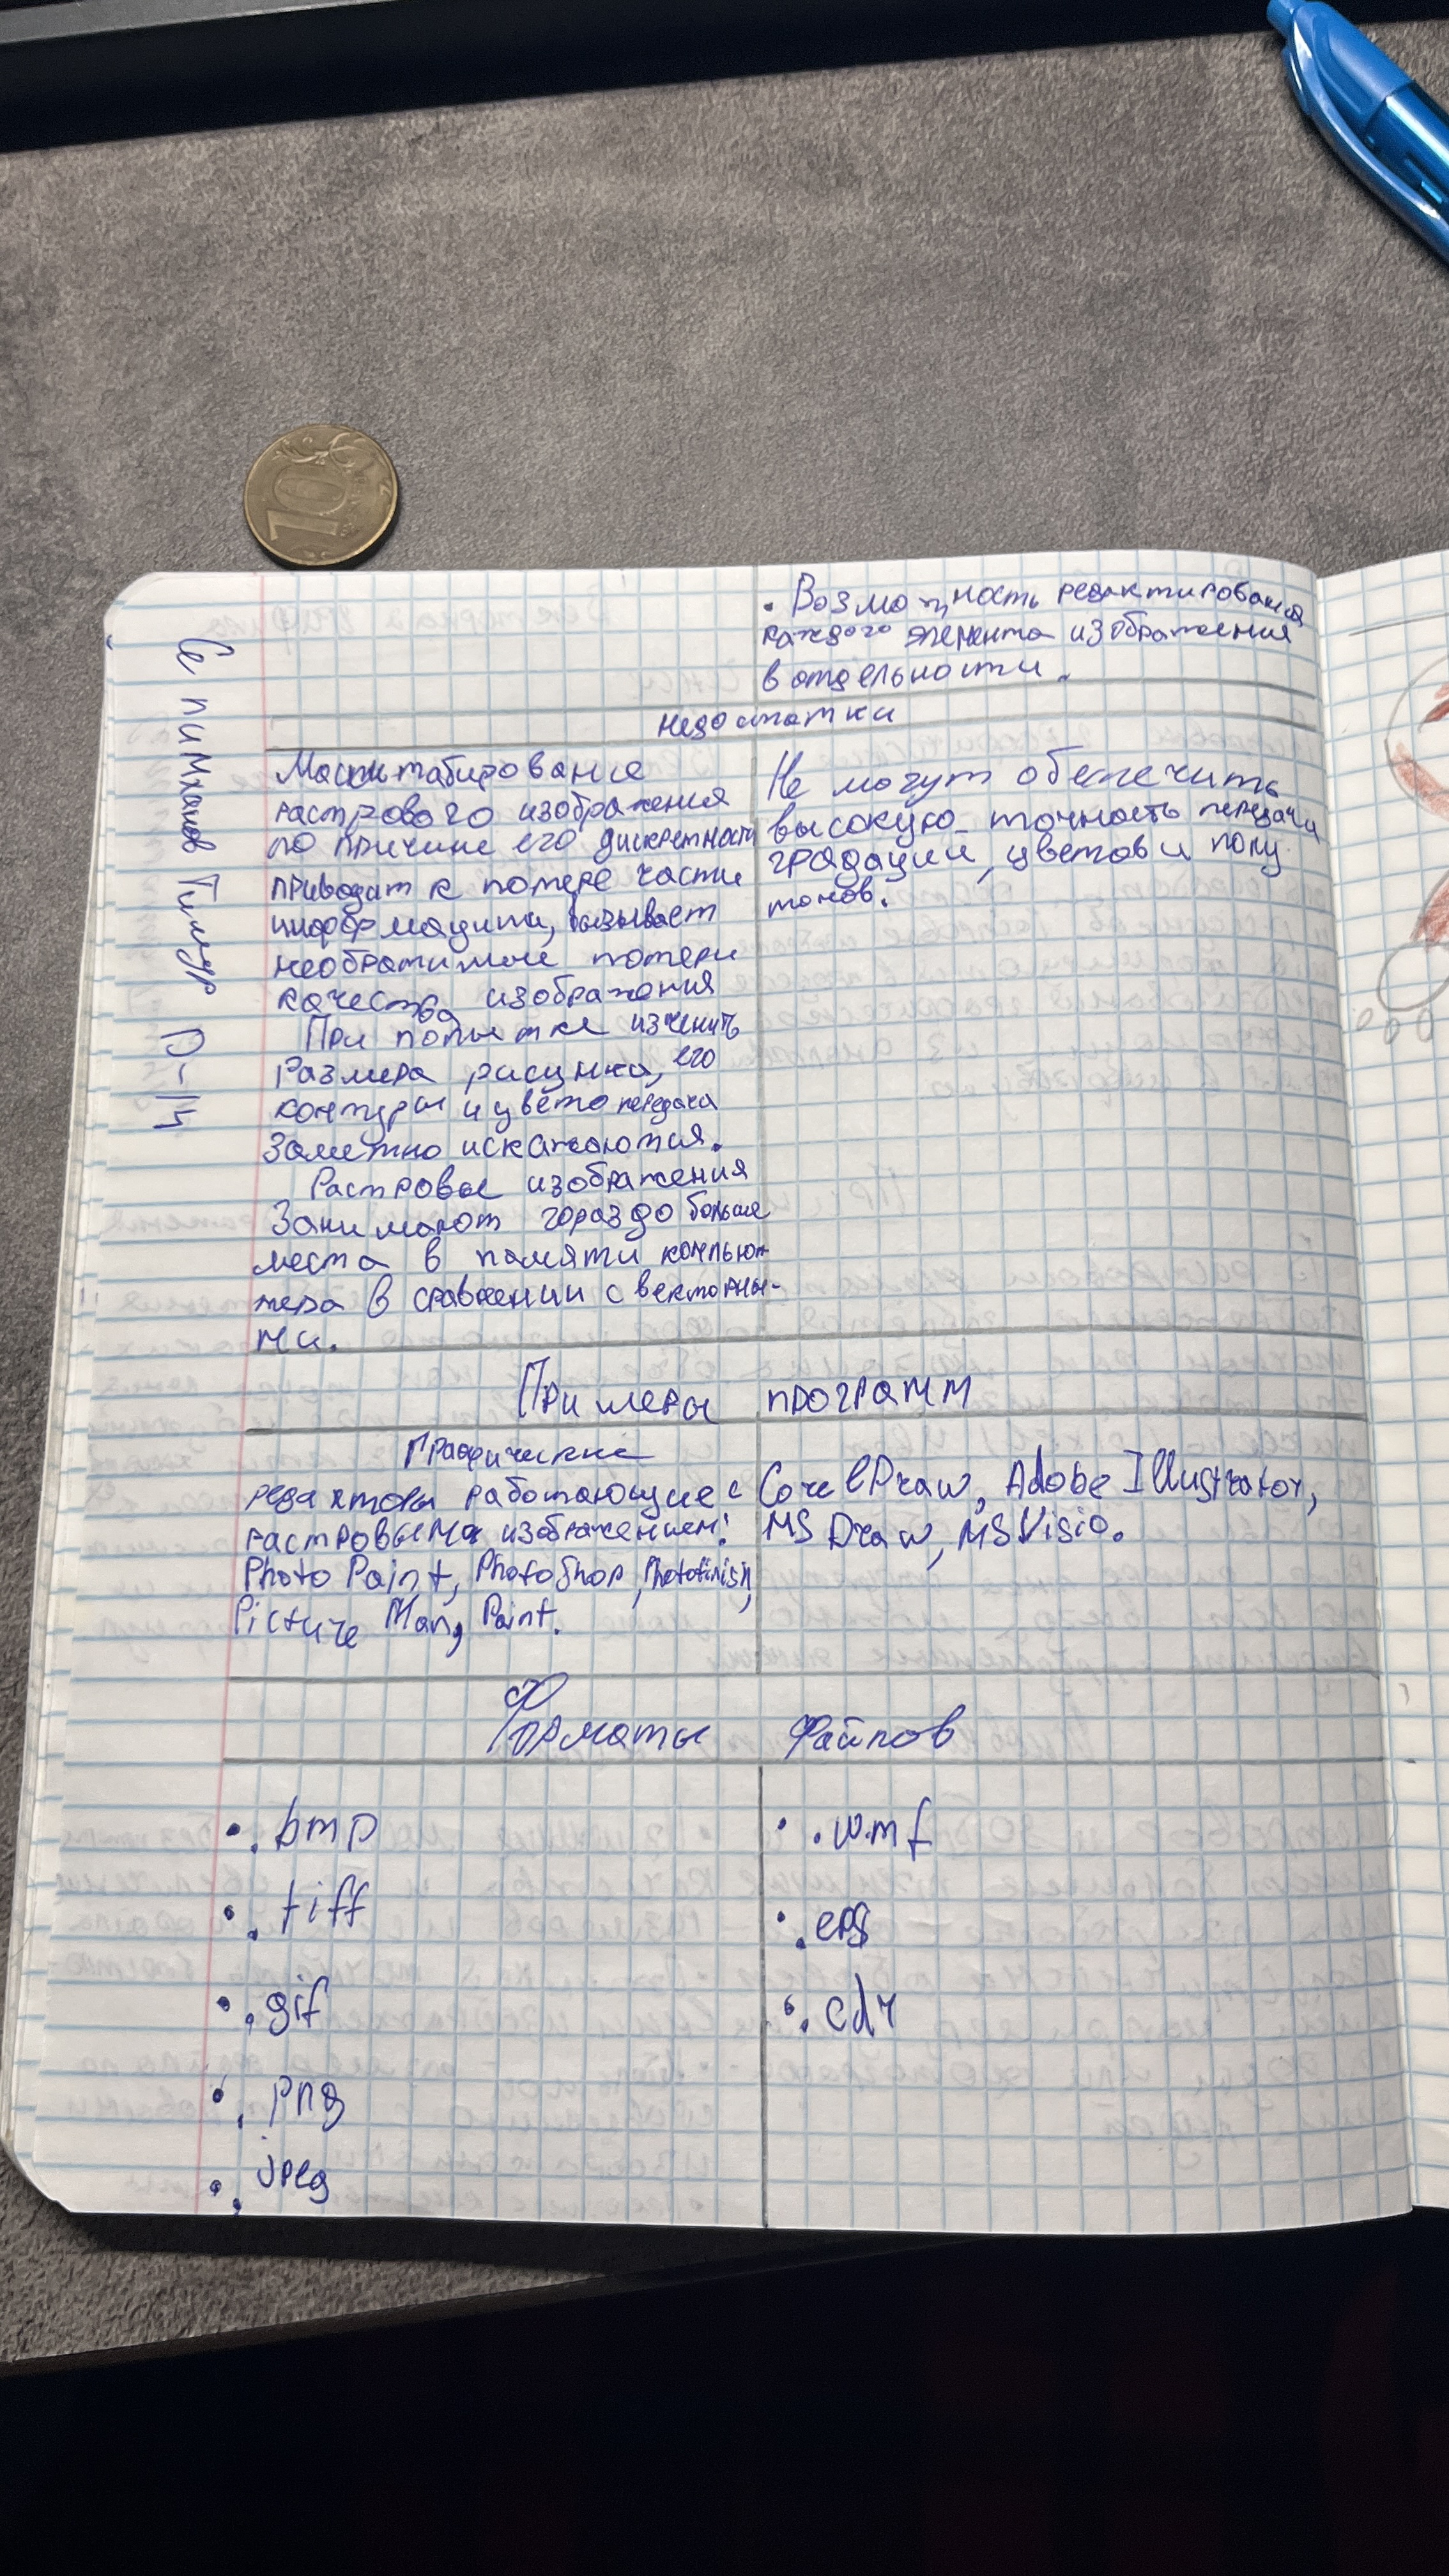 10
• Возможность редактирования
каждого элемента изображения
в отдельности.
недостатки
Масштабирование
растрового изображения
по причине его дискретности
приводит к потере части
информации, вызывает
необратимые потери
качества изображения
При попытке изменить
размера рисунка, его
контуры и цвето передача
заметно искажаются.
Растровые изображения
Занимают гораздо больше
места в памяти компью-
тера в сравнении с векторны-
ми.
Не могут обеспечить
высокую точность передачи
градации, цветов и полу
тонов.
Примеры программ
Графические
редакторы работающие с
растровыми изображением:
Photo Paint, PhotoShop, Photofinish,
Picture Man, Paint.
CorelDraw, Adobe Illustrator,
MS Draw, MS Visio.
Форматы файлов
• .bmp
• .tiff
• .gif
• .png
• .jpeg
• .wmf
• .eps
• .cdr
Тимур Р-14